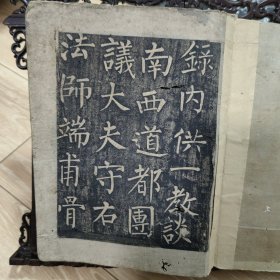 錄內供一教談
南西道都團
議大夫守右
法師端甫骨